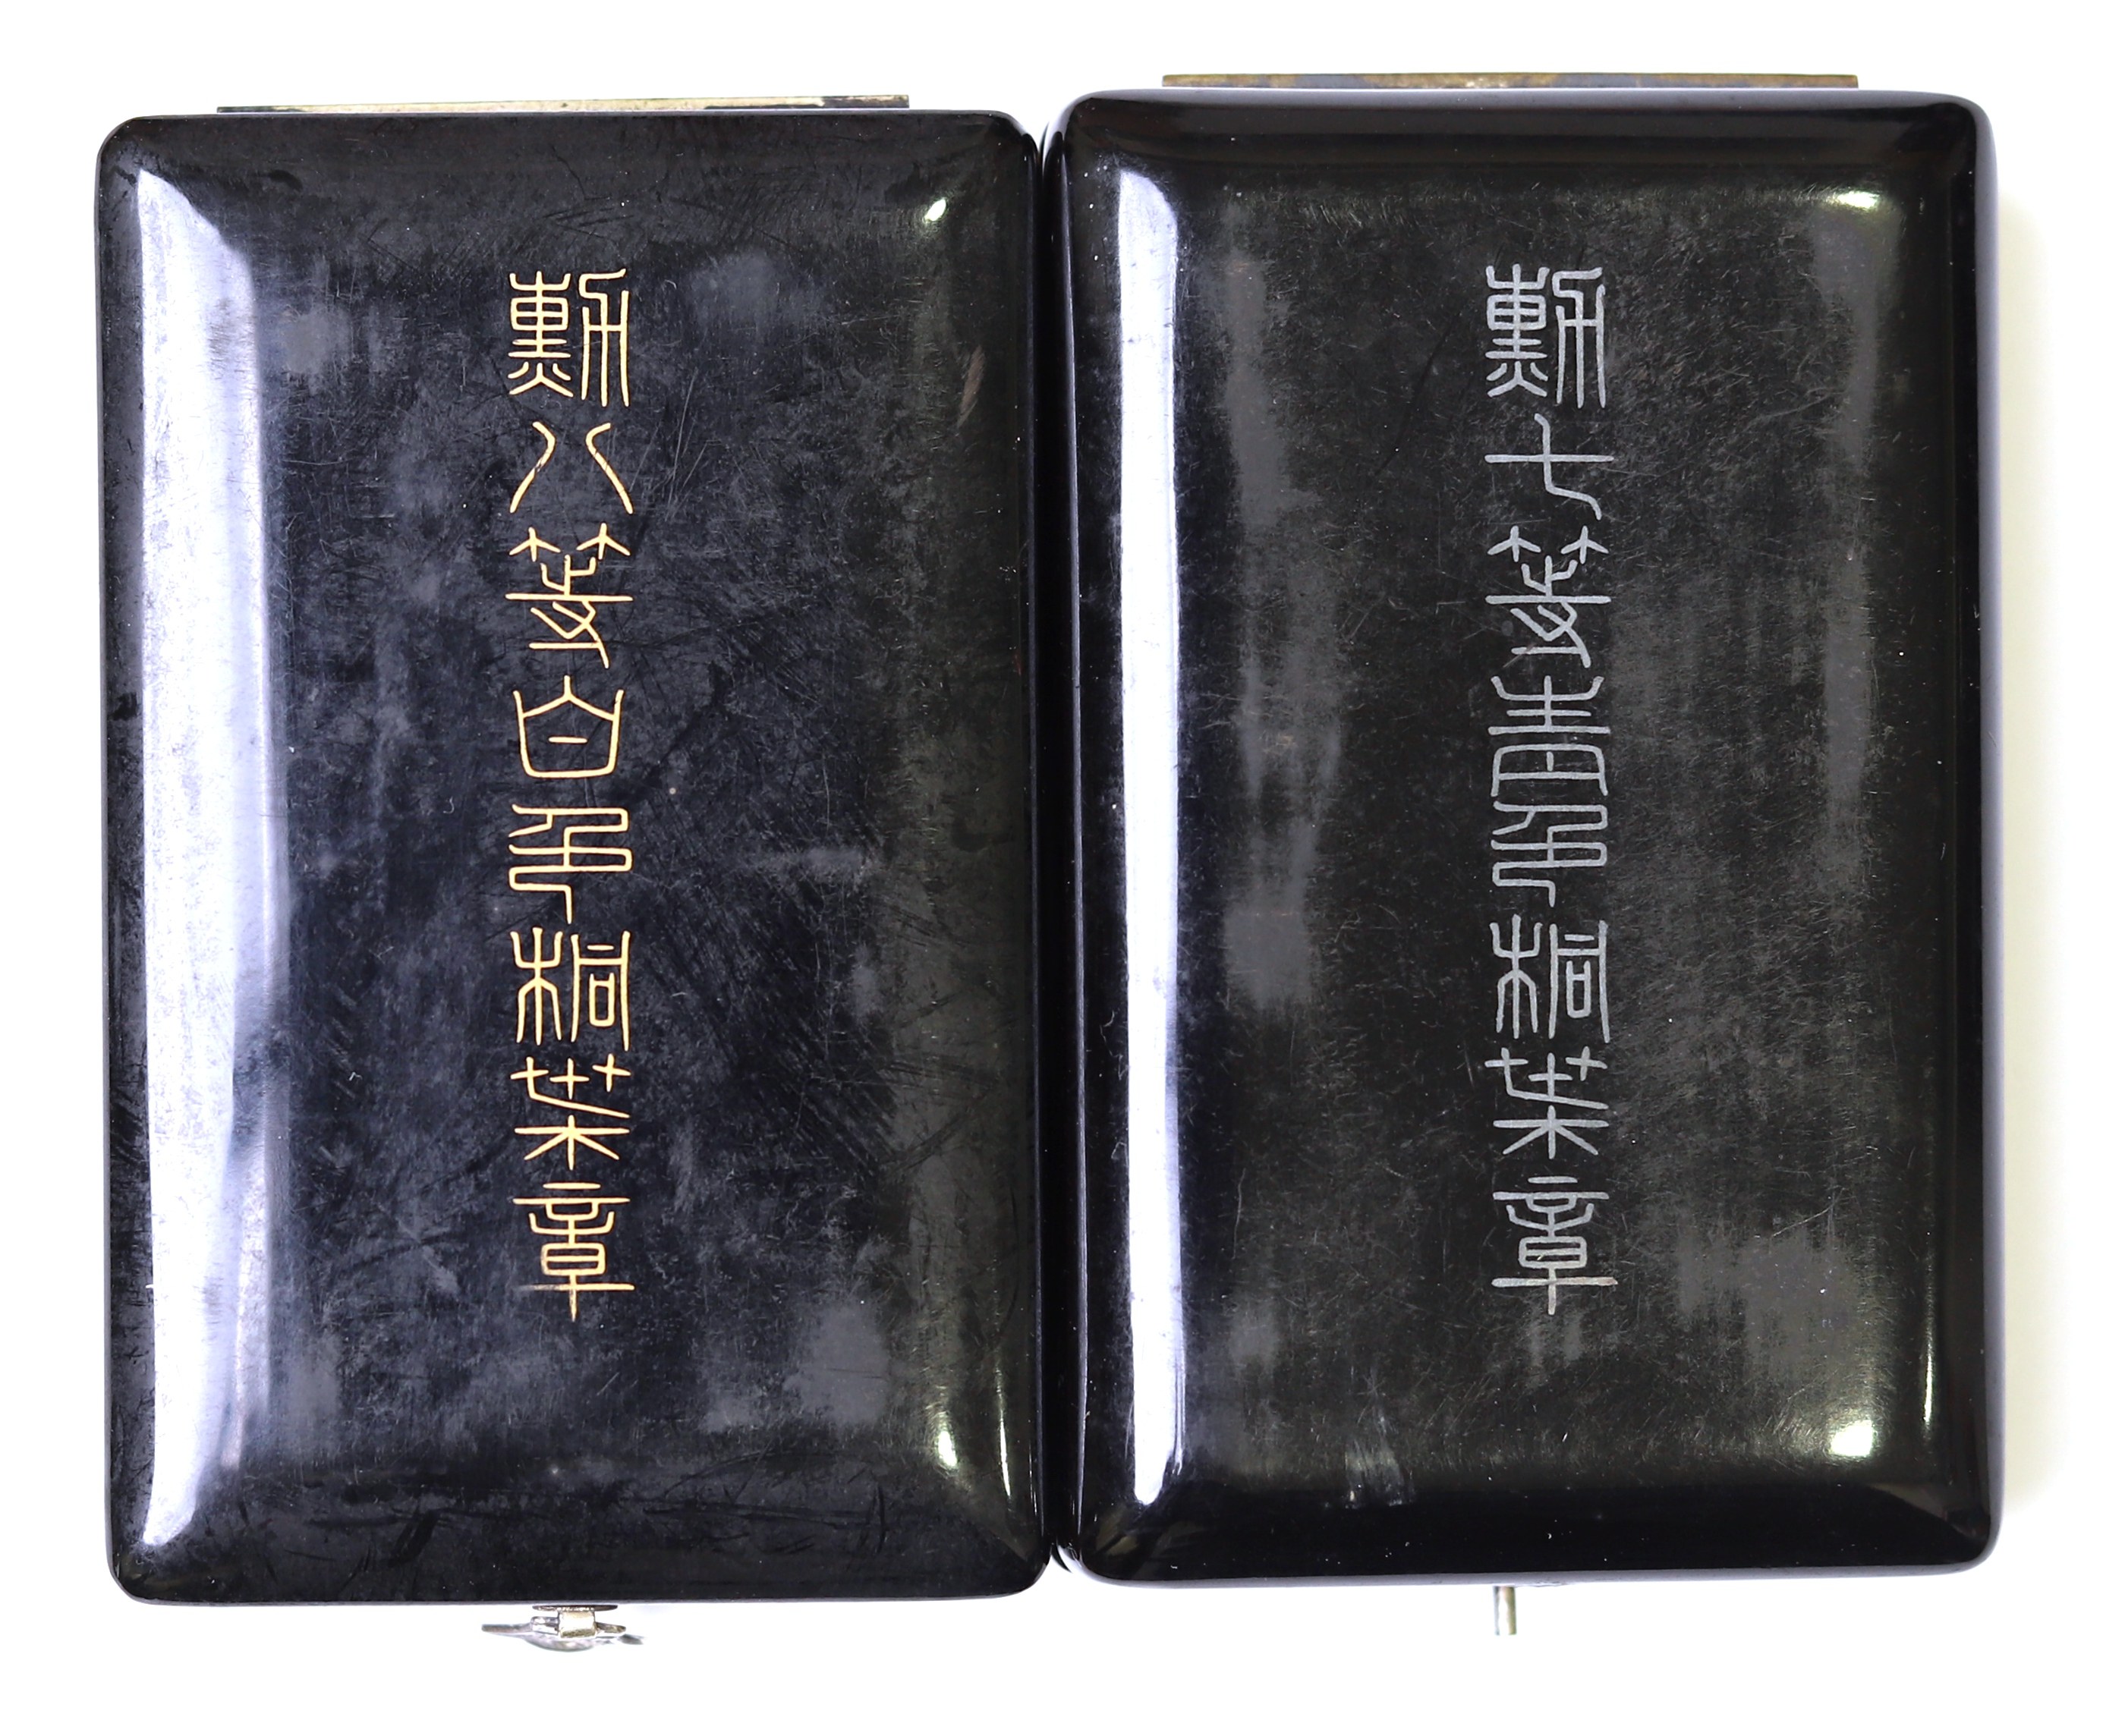 勲八等白色桐葉章
勲七等青色桐葉章